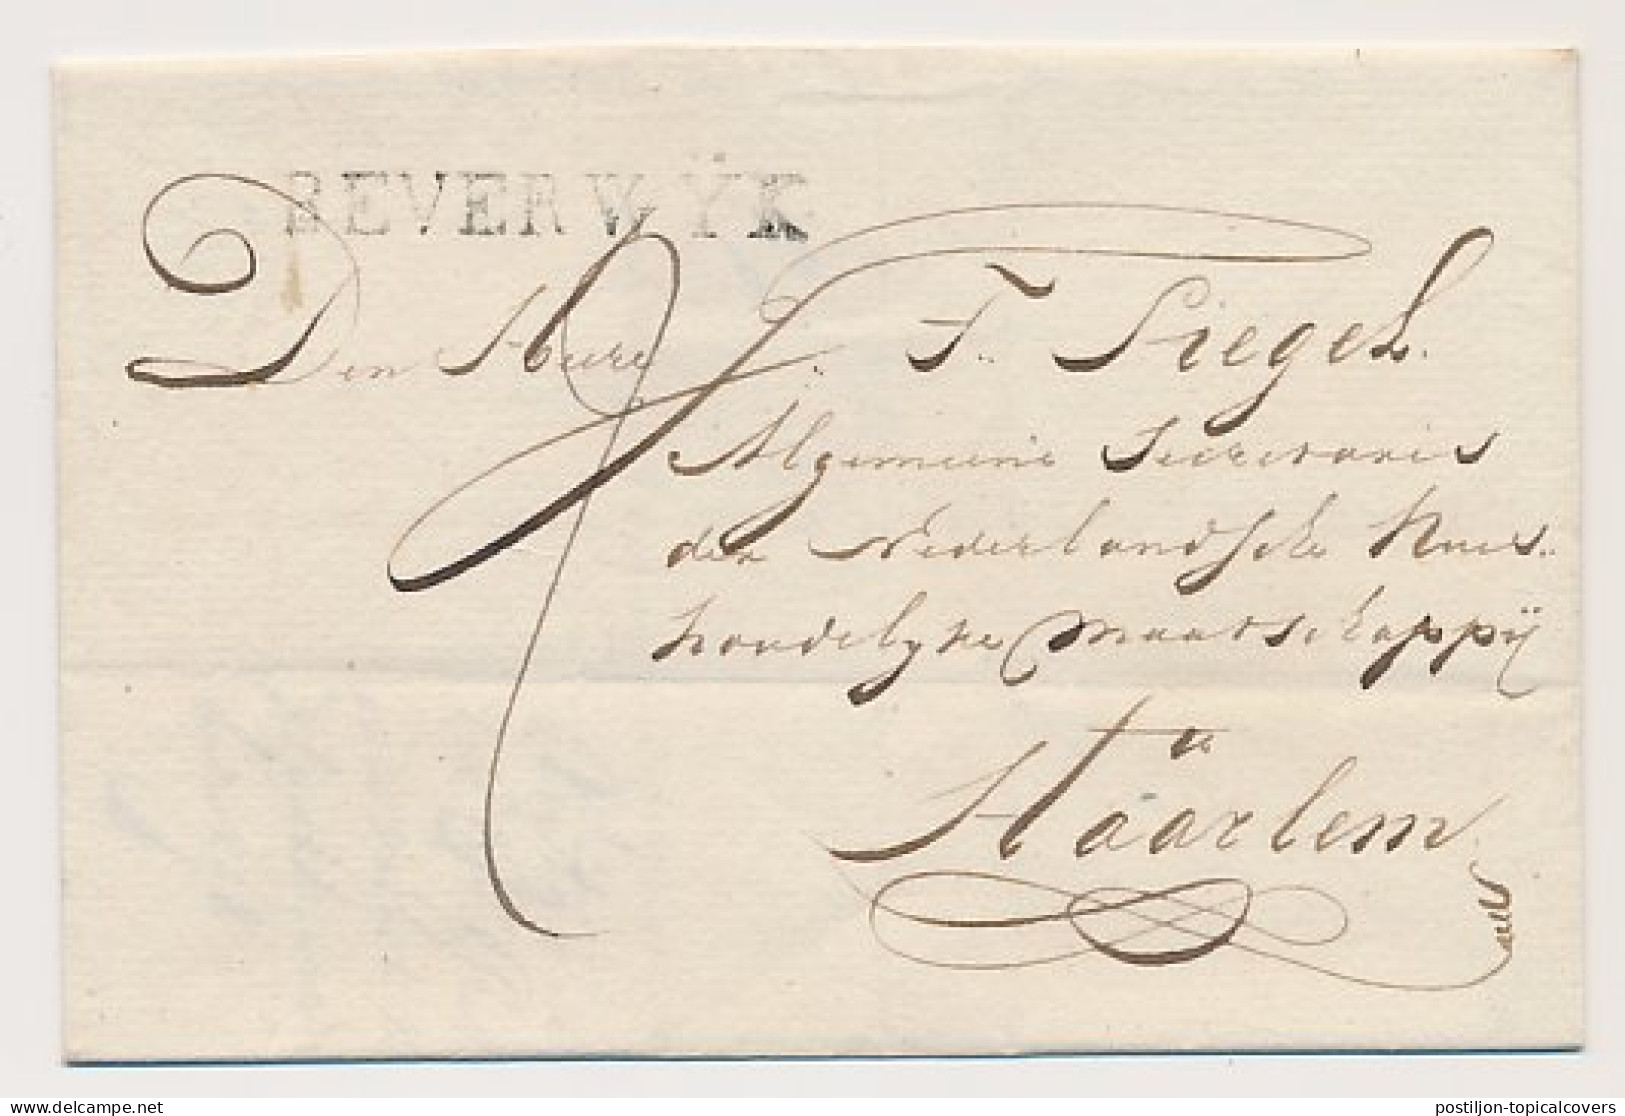 BEVERWŸK
Den Heere J: F.. Siegel.
Algemeene Secretaris
der Nederlandsche Huis..
houdelyke Maatschappÿ
te
Häarlem
delcampe.net
postiljon-topicalcovers